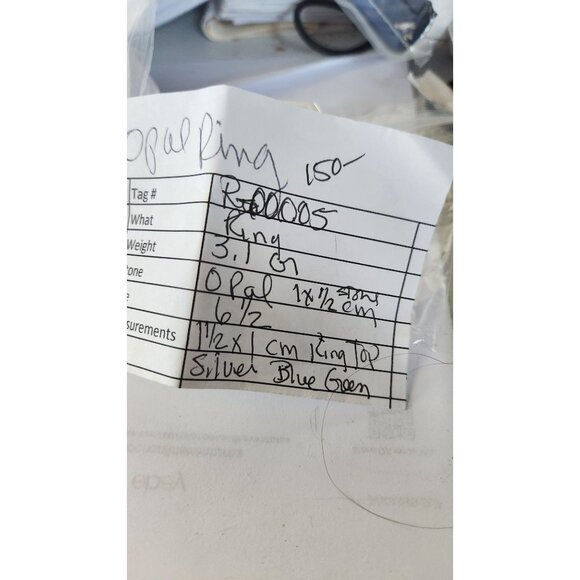 Opal Ring 150-
Tag # R-00005
What Ring
Weight 3.1 Gr
tone Opal 1x1/2 stone cm
e 6 1/2
surements 1 1/2 x 1 cm Ring Top
Silver Blue Green